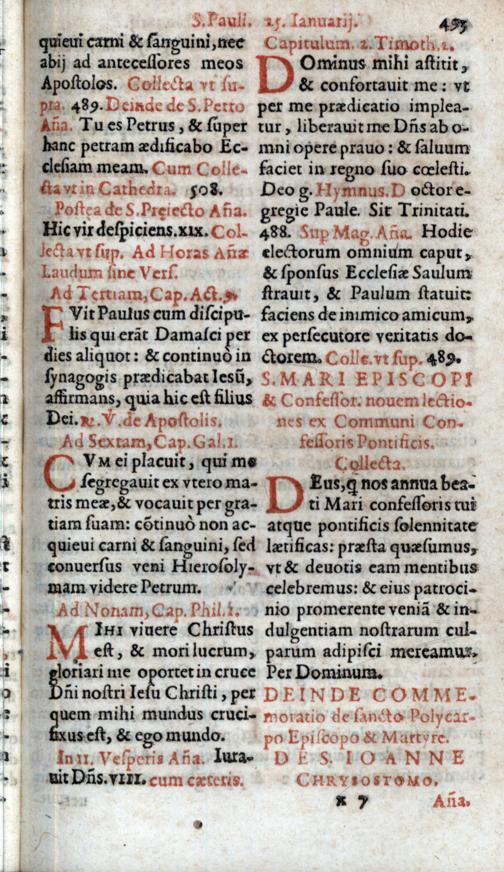 S. Pauli. 25. Ianuarij. 493
quieui carni & sanguini, nec
abij ad antecessores meos
Apostolos. Collecta vt su-
pra. 489. Deinde de S. Petro
Aña. Tu es Petrus, & super
hanc petram ædificabo Ec-
clesiam meam. Cum Colle-
cta vt in Cathedra. 508.
Postea de S. Preiecto Aña.
Hic vir despiciens. xix. Col-
lecta vt sup. Ad Horas Añæ
Laudum sine Vers.
Ad Tertiam, Cap. Act. 9.
FVit Paulus cum discipu-
lis qui erãt Damasci per
dies aliquot: & continuò in
synagogis prædicabat Iesũ,
affirmans, quia hic est filius
Dei. ℟. ℣. de Apostolis.
Ad Sextam, Cap. Gal. 1.
CVM ei placuit, qui me
segregauit ex vtero ma-
tris meæ, & vocauit per gra-
tiam suam: cõtinuò non ac-
quieui carni & sanguini, sed
conuersus veni Hierosoly-
mam videre Petrum.
Ad Nonam, Cap. Phil. 1.
MIHI viuere Christus
est, & mori lucrum,
gloriari me oportet in cruce
Dñi nostri Iesu Christi, per
quem mihi mundus cruci-
fixus est, & ego mundo.
In 11. Vesperis Aña. Iura-
uit Dñs. VIII. cum cæteris.
Capitulum. 2. Timoth. 2.
DOminus mihi astitit,
& confortauit me: vt
per me prædicatio implea-
tur, liberauit me Dñs ab o-
mni opere prauo: & saluum
faciet in regno suo cœlesti.
Deo g. Hymnus. Doctor e-
gregie Paule. Sit Trinitati.
488. Sup Mag. Aña. Hodie
electorum omnium caput,
& sponsus Ecclesiæ Saulum
strauit, & Paulum statuit:
faciens de inimico amicum,
ex persecutore veritatis do-
ctorem. Colle. vt sup. 489.
S. MARI EPISCOPI
& Confessor. nouem lectio-
nes ex Communi Con-
fessoris Pontificis.
Collecta.
DEus, q̃ nos annua bea-
ti Mari confessoris tui
atque pontificis solennitate
lætificas: præsta quæsumus,
vt & deuotis eam mentibus
celebremus: & eius patroci-
nio promerente veniã & in-
dulgentiam nostrarum cul-
parum adipisci mereamur.
Per Dominum.
DEINDE COMME-
moratio de sancto Polycar-
po Episcopo & Martyre.
DE S. IOANNE
CHRYSOSTOMO.
x 7 Aña.